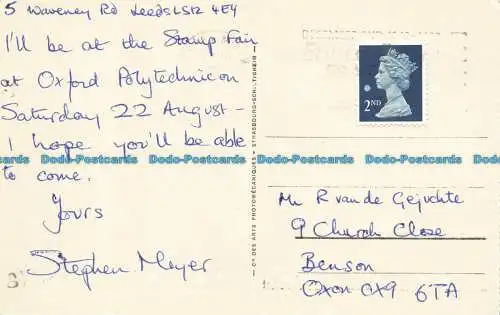 5 Waveney Rd Leeds LS12 4EY
I'll be at the Stamp Fair
at Oxford Polytechnic on
Saturday 22 August -
I hope you'll be able
to come.
Yours
Stephen Meyer
Cie DES ARTS PHOTOMÉCANIQUES • STRASBOURG-SCHILTIGHEIM
2ND
Mr R van de Gejuchte
9 Church Close
Benson
Oxon OX9 6TA
Dodo-Postcards Dodo-Postcards Dodo-Postcards Dodo-Postcards
Dodo-Postcards Dodo-Postcards Dodo-Postcards Dodo-Postcards